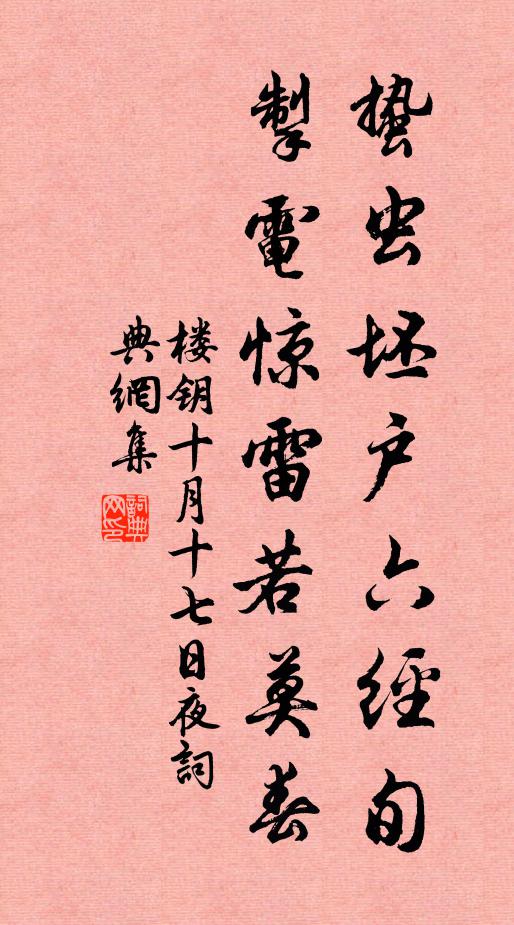 蛰虫坯户六經旬
掣電惊雷若莫春
楼钥十月十七日夜詞
典網集
詞典
网印